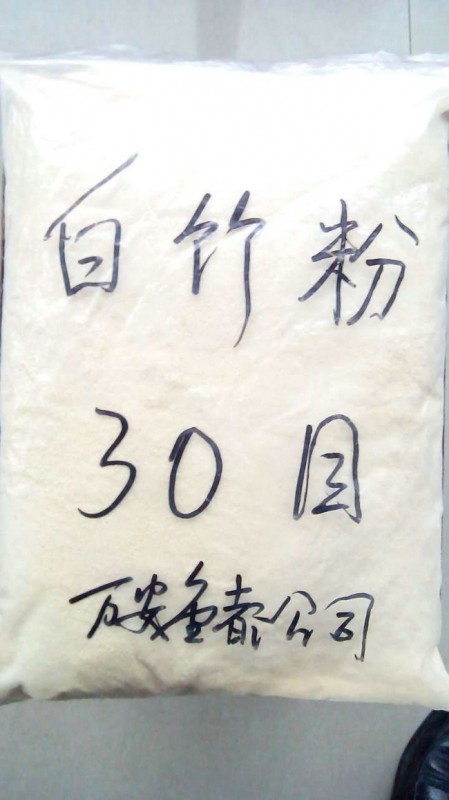 白竹粉
30目
万安金都公司